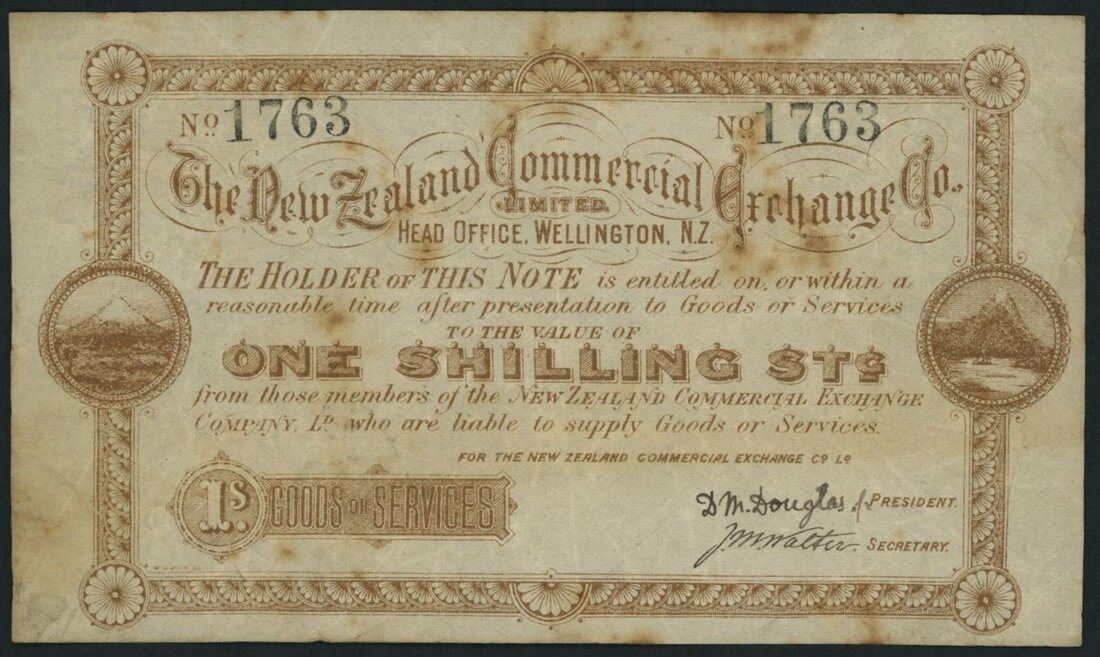 No 1763 No 1763
The New Zealand Commercial Exchange Co.,
LIMITED.
HEAD OFFICE, WELLINGTON, N.Z.
THE HOLDER OF THIS NOTE is entitled on, or within a
reasonable time after presentation to Goods or Services
TO THE VALUE OF
ONE SHILLING STG
from those members of the NEW ZEALAND COMMERCIAL EXCHANGE
COMPANY, LD. who are liable to supply Goods or Services.
FOR THE NEW ZEALAND COMMERCIAL EXCHANGE CO LD
1s. GOODS OR SERVICES
D M. Douglas PRESIDENT.
J M Walter SECRETARY.